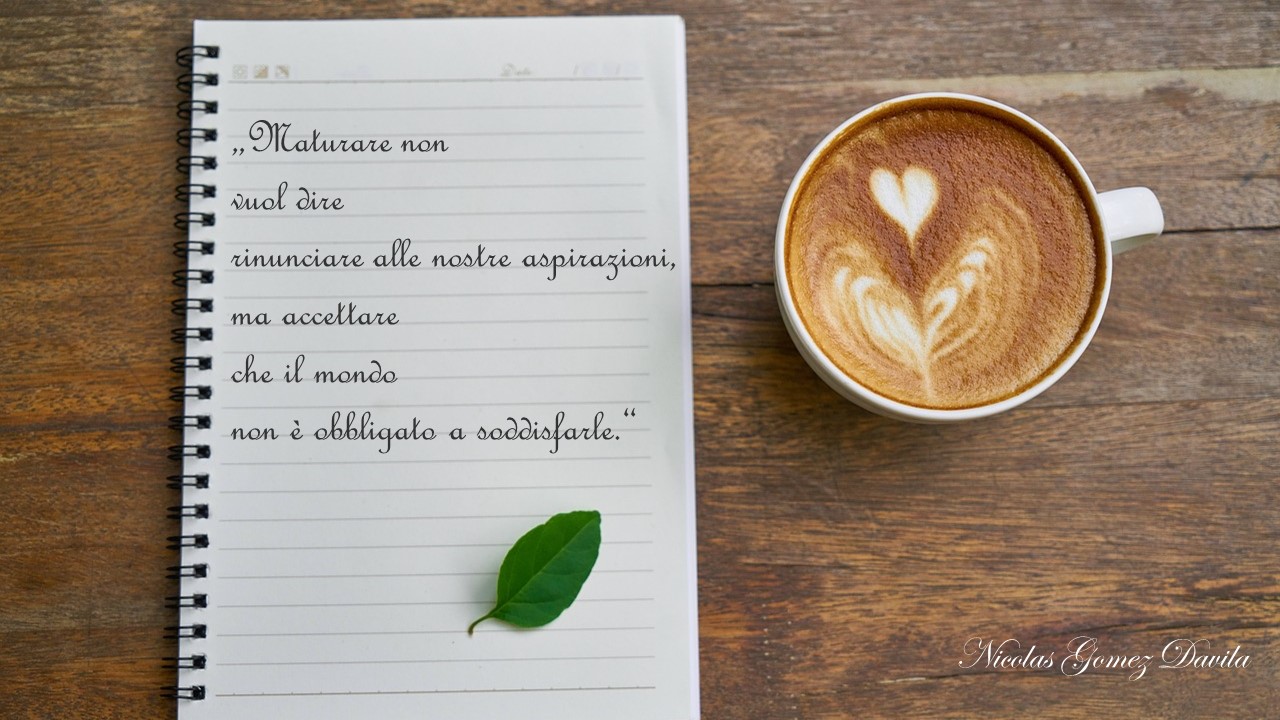 „Maturare non
vuol dire
rinunciare alle nostre aspirazioni,
ma accettare
che il mondo
non è obbligato a soddisfarle.“
Nicolas Gomez Davila